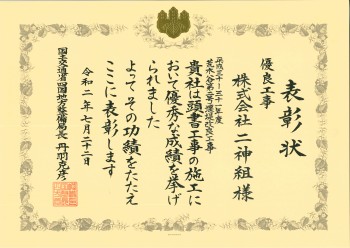 表彰状
優良工事
株式会社二神組様
平成三十―三十一年度
荒水谷第二号堰堤改良工事
貴社は頭書工事の施工に
おいて優秀な成績を挙げ
られました
よってその功績をたたえ
ここに表彰します
令和二年七月二十二日
国土交通省四国地方整備局長 丹羽克彦